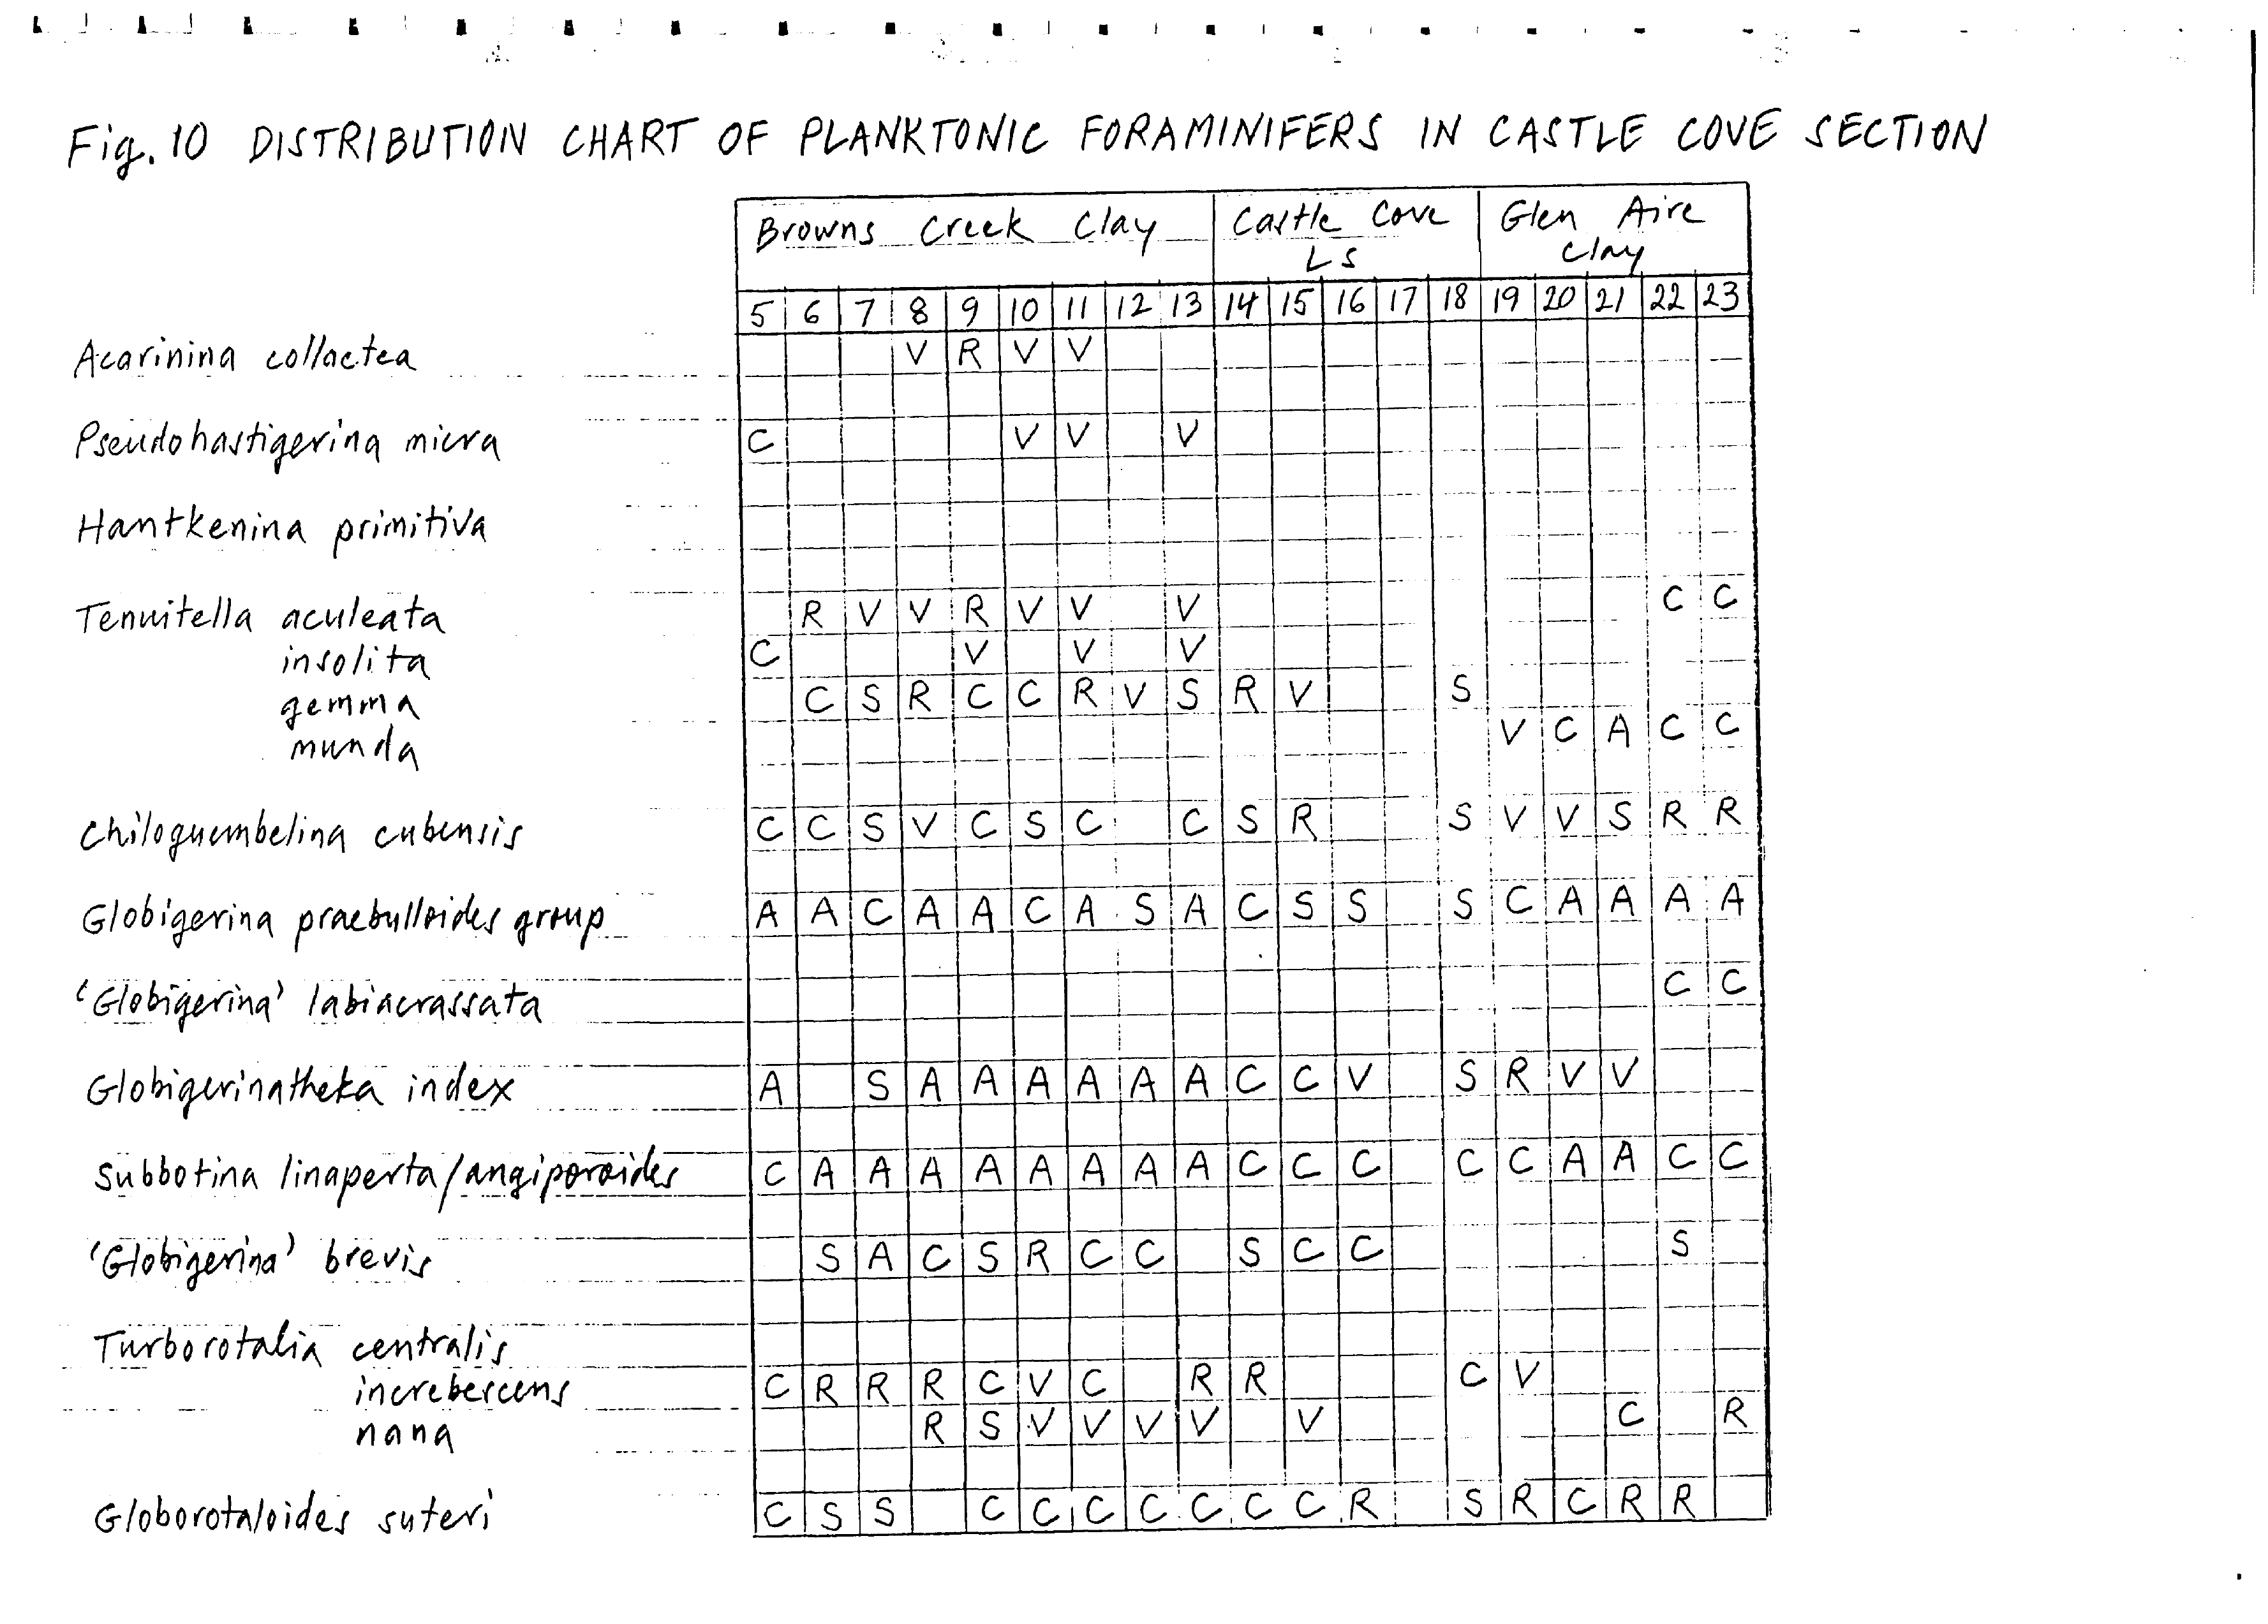 Fig. 10 DISTRIBUTION CHART OF PLANKTONIC FORAMINIFERS IN CASTLE COVE SECTION
Browns Creek Clay Castle Cove LS Glen Aire Clay
5 6 7 8 9 10 11 12 13 14 15 16 17 18 19 20 21 22 23
Acarinina collactea V R V V
Pseudohastigerina micra C V V V
Hantkenina primitiva
Tenuitella aculeata R V V R V V V C C
insolita C V V V
gemma C S R C C R V S R V S
munda V C A C C
Chiloguembelina cubensis C C S V C S C C S R S V V S R R
Globigerina praebulloides group A A C A A C A S A C S S S C A A A A
'Globigerina' labiacrassata C C
Globigerinatheka index A S A A A A A A C C V S R V V
Subbotina linaperta/angiporoides C A A A A A A A A C C C C C A A C C
'Globigerina' brevis S A C S R C C S C C S
Turborotalia centralis
increbescens C R R R C V C R R C V
nana R S V V V V V C R
Globorotaloides suteri C S S C C C C C C C R S R C R R